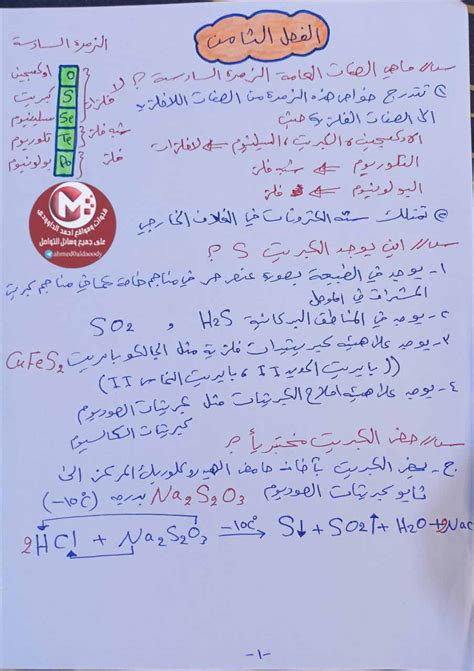 الفصل الثامن
الزمرة السادسة
O اوكسجين
S كبريت
Se سيلينيوم
Te تلوريوم
Po بولونيوم
لا فلزات
شبه فلز
فلز
قنوات ومواقع احمد الداوودي
على جميع وسائل التواصل
@ahmed0aldaoody
س// ماهي الصفات العامة الزمرة السادسة ؟
تتدرج خواص هذه الزمرة من الصفات اللافلزية
الى الصفات الفلزية حيث
الاوكسجين والكبريت والسلنيوم لافلزات
التلوريوم شبه فلز
البولونيوم فلز
تمتلك ستة الكترونات في الغلاف الخارجي
س// اين يوجد الكبريت S ؟
١- يوجد في الطبيعة بصورة عنصر حر في مناجم خاصة كما في مناجم كبريت
المشراق في الموصل
٢- يوجد في المناطق البركانية H2S و SO2
٣- يوجد على هيئة كبريتيدات فلزية مثل الجالكوبايريت CuFeS2
(( بايريت الحديد II ، بايريت النحاس II ))
٤- يوجد على هيئة املاح الكبريتات مثل كبريتات الصوديوم
كبريتات الكالسيوم
س// حضر الكبريت مختبرياً ؟
ج- يحضر الكبريت بأضافة حامض الهيدروكلوريك المركز الى
ثايوكبريتات الصوديوم Na2S2O3 بدرجة (-10C°)
2HCl + Na2S2O3 -10C° → S↓ + SO2↑ + H2O + 2NaC
-١-